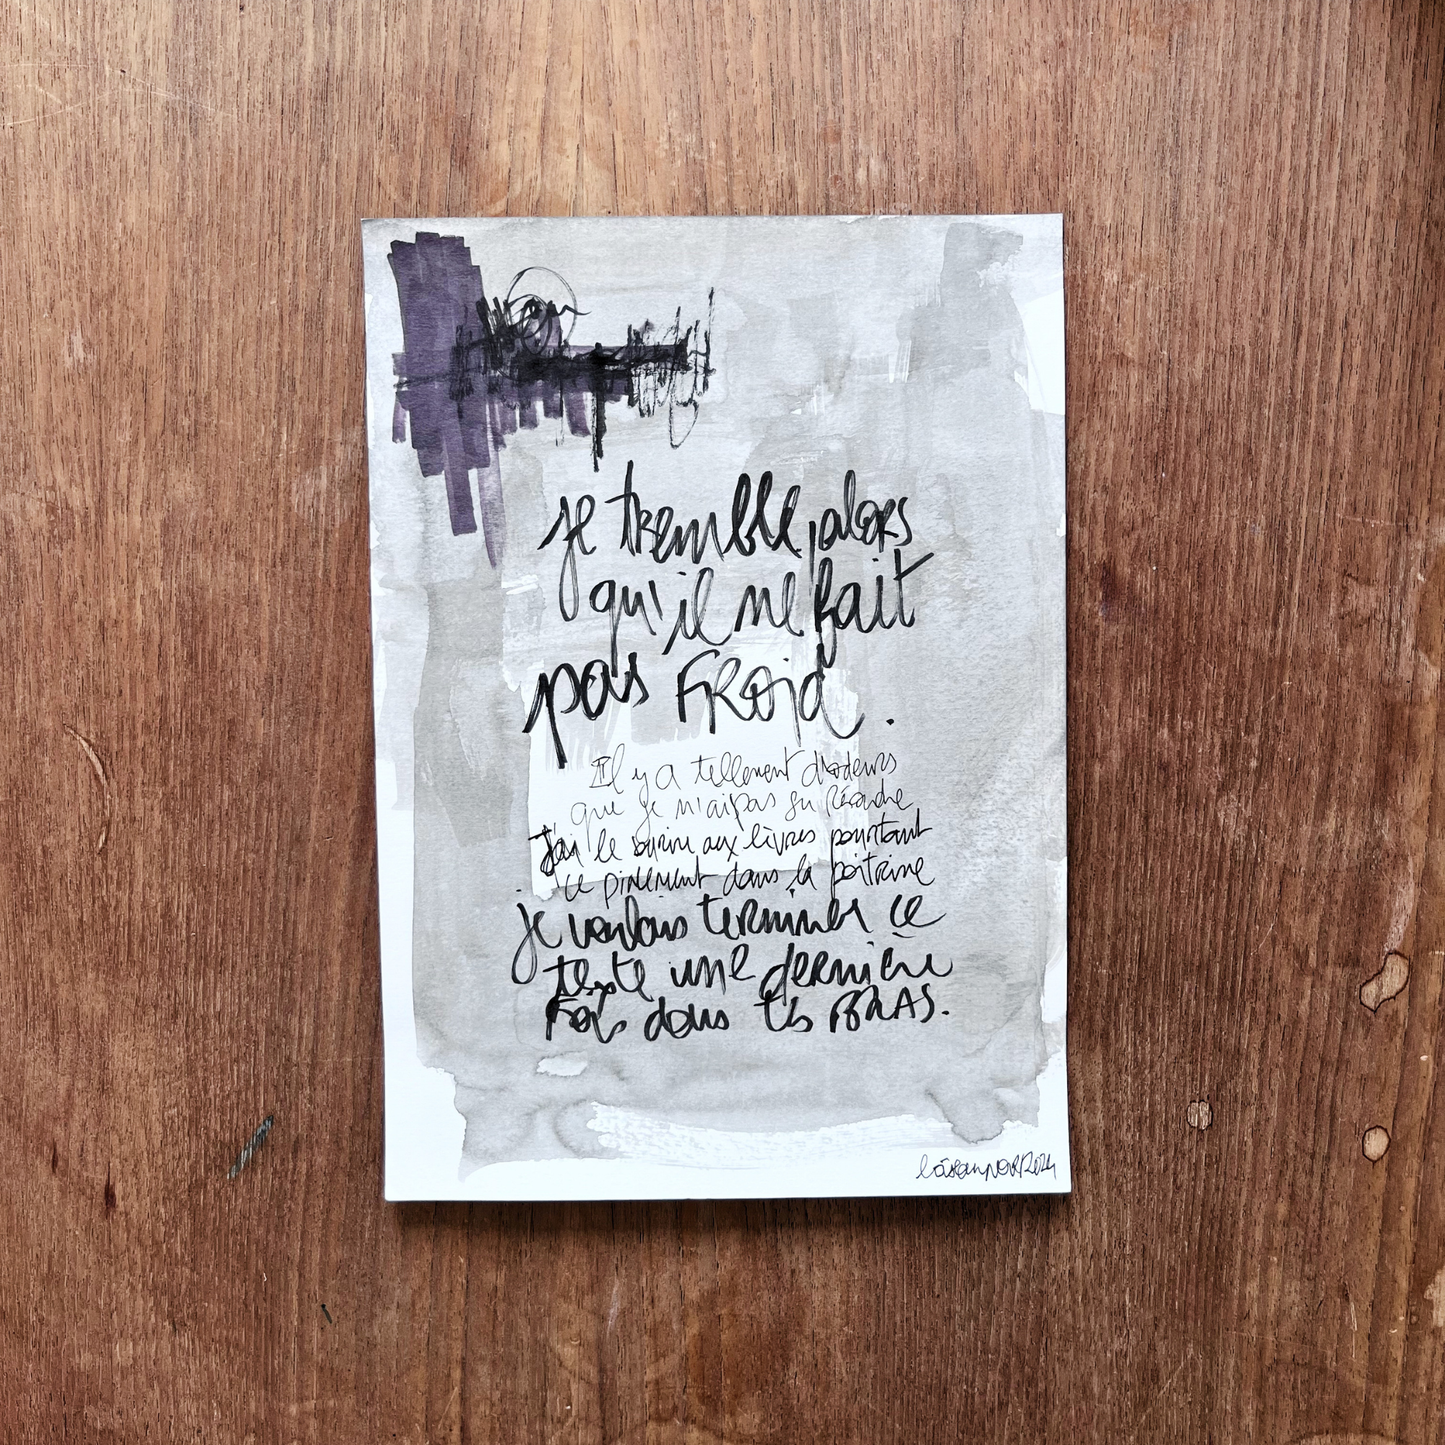 je tremble, alors
qu'il ne fait
pas FROid.
Il y a tellement d'odeurs
que je n'ai pas su résoudre
J'ai le sourire aux lèvres pourtant
ce pincement dans la poitrine
je voulais terminer ce
texte une dernière
Fois dans tes BRAS.